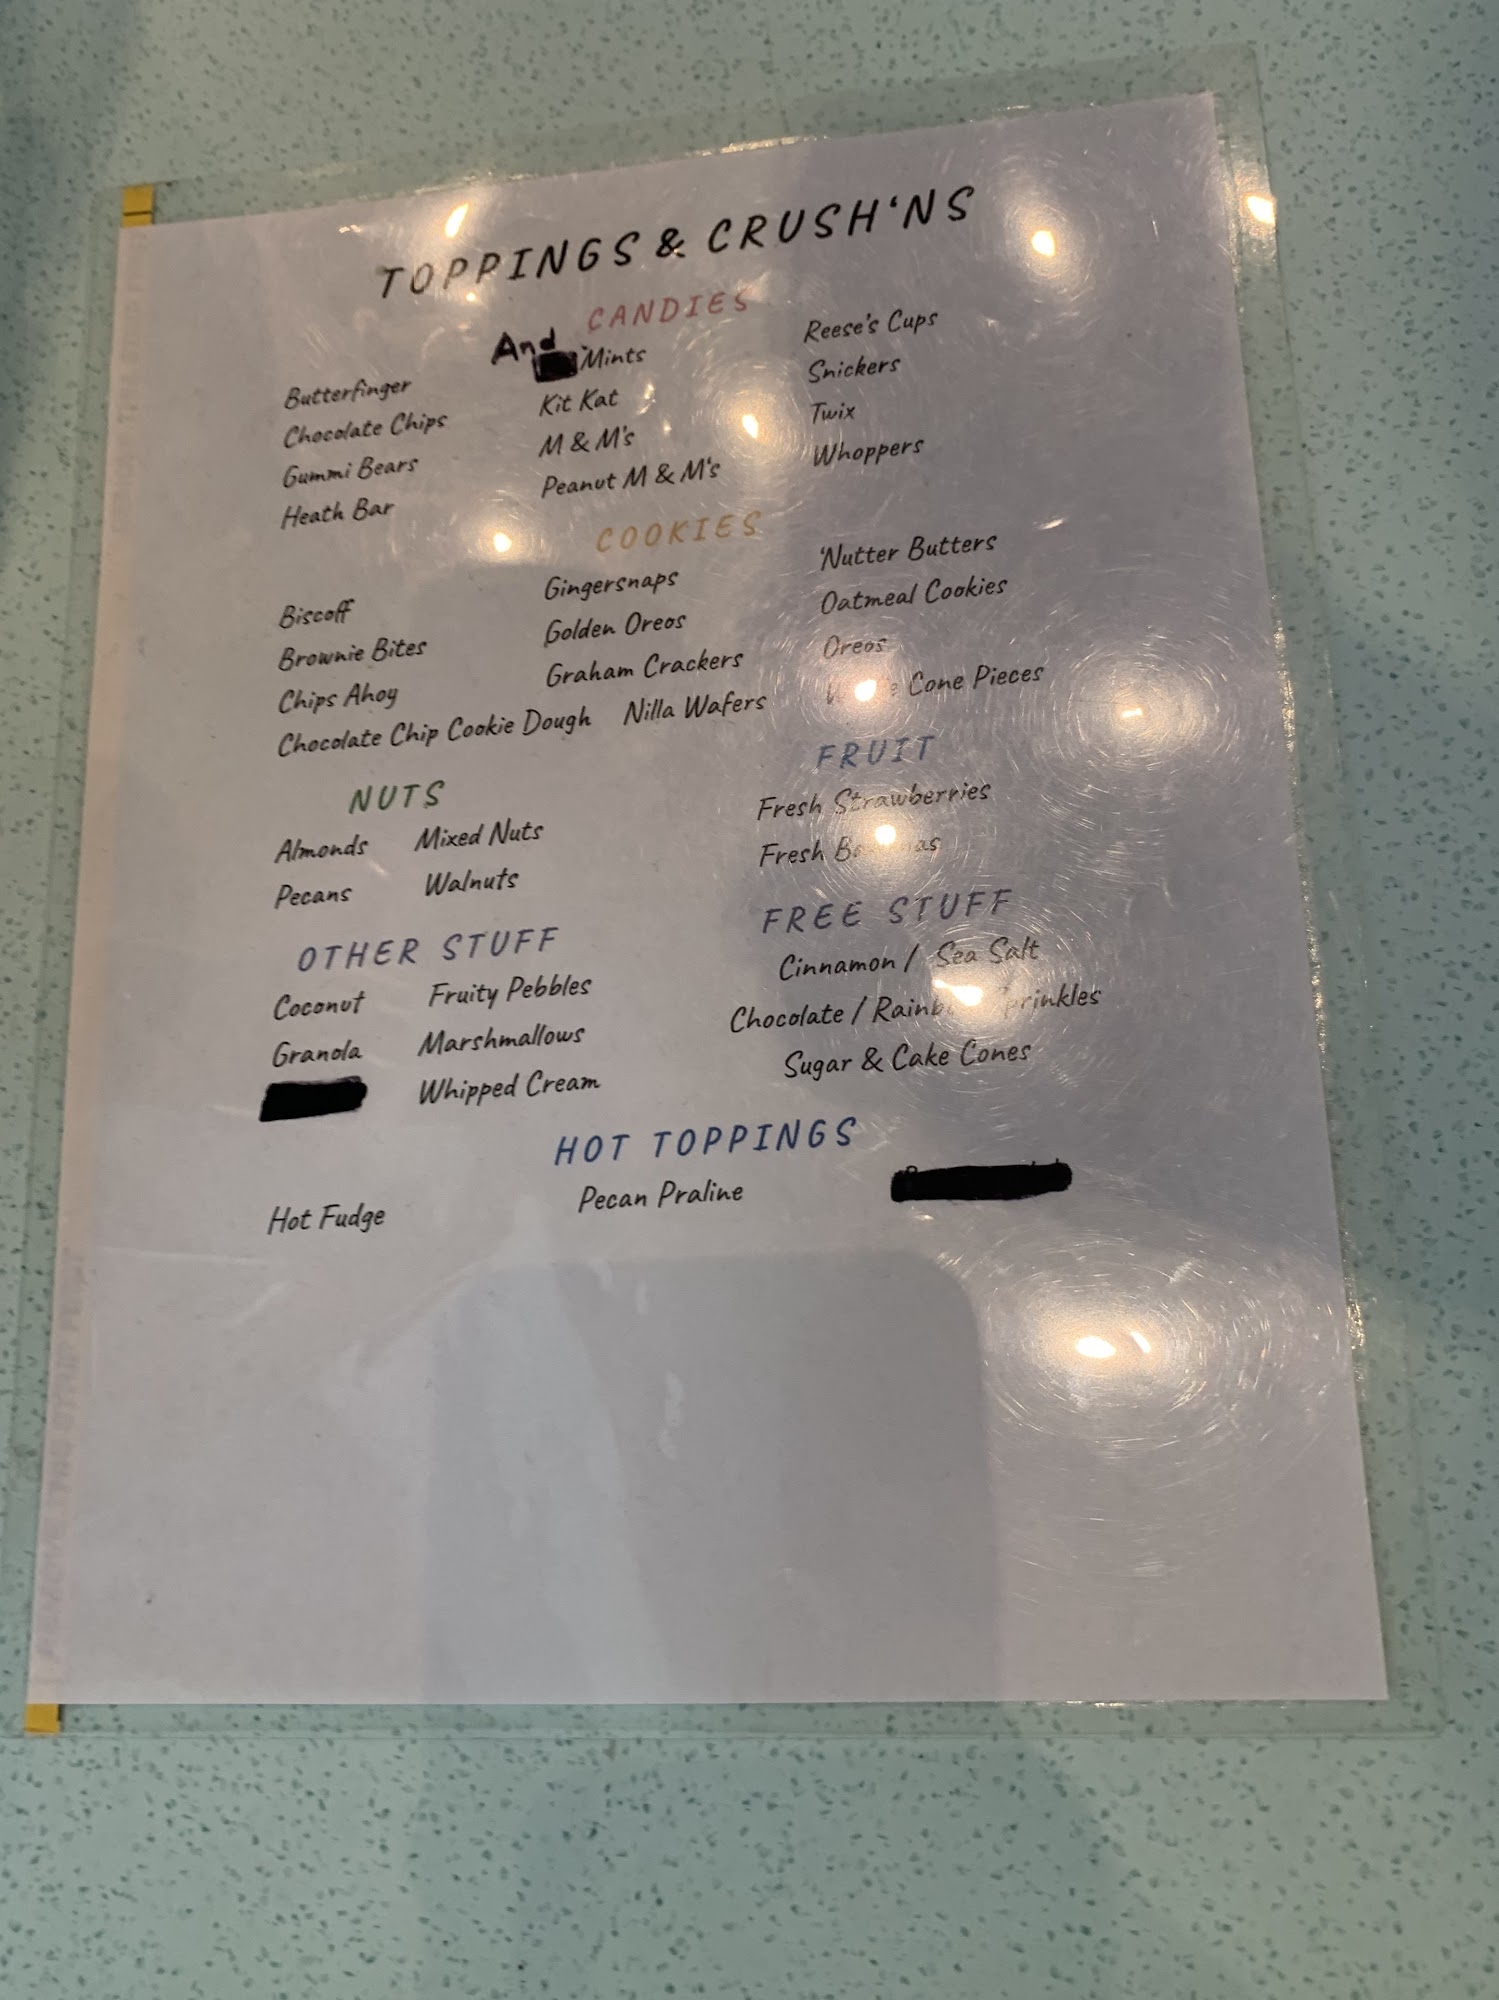 TOPPINGS & CRUSH'NS
CANDIES
Butterfinger
Chocolate Chips
Gummi Bears
Heath Bar
And Mints
Kit Kat
M & M's
Peanut M & M's
Reese's Cups
Snickers
Twix
Whoppers
COOKIES
Biscoff
Brownie Bites
Chips Ahoy
Chocolate Chip Cookie Dough
Gingersnaps
Golden Oreos
Graham Crackers
Nilla Wafers
'Nutter Butters
Oatmeal Cookies
Oreos
Cone Pieces
NUTS
Almonds Mixed Nuts
Pecans Walnuts
FRUIT
Fresh Strawberries
Fresh Bananas
OTHER STUFF
Coconut Fruity Pebbles
Granola Marshmallows
Whipped Cream
FREE STUFF
Cinnamon / Sea Salt
Chocolate / Rainbow Sprinkles
Sugar & Cake Cones
HOT TOPPINGS
Hot Fudge Pecan Praline